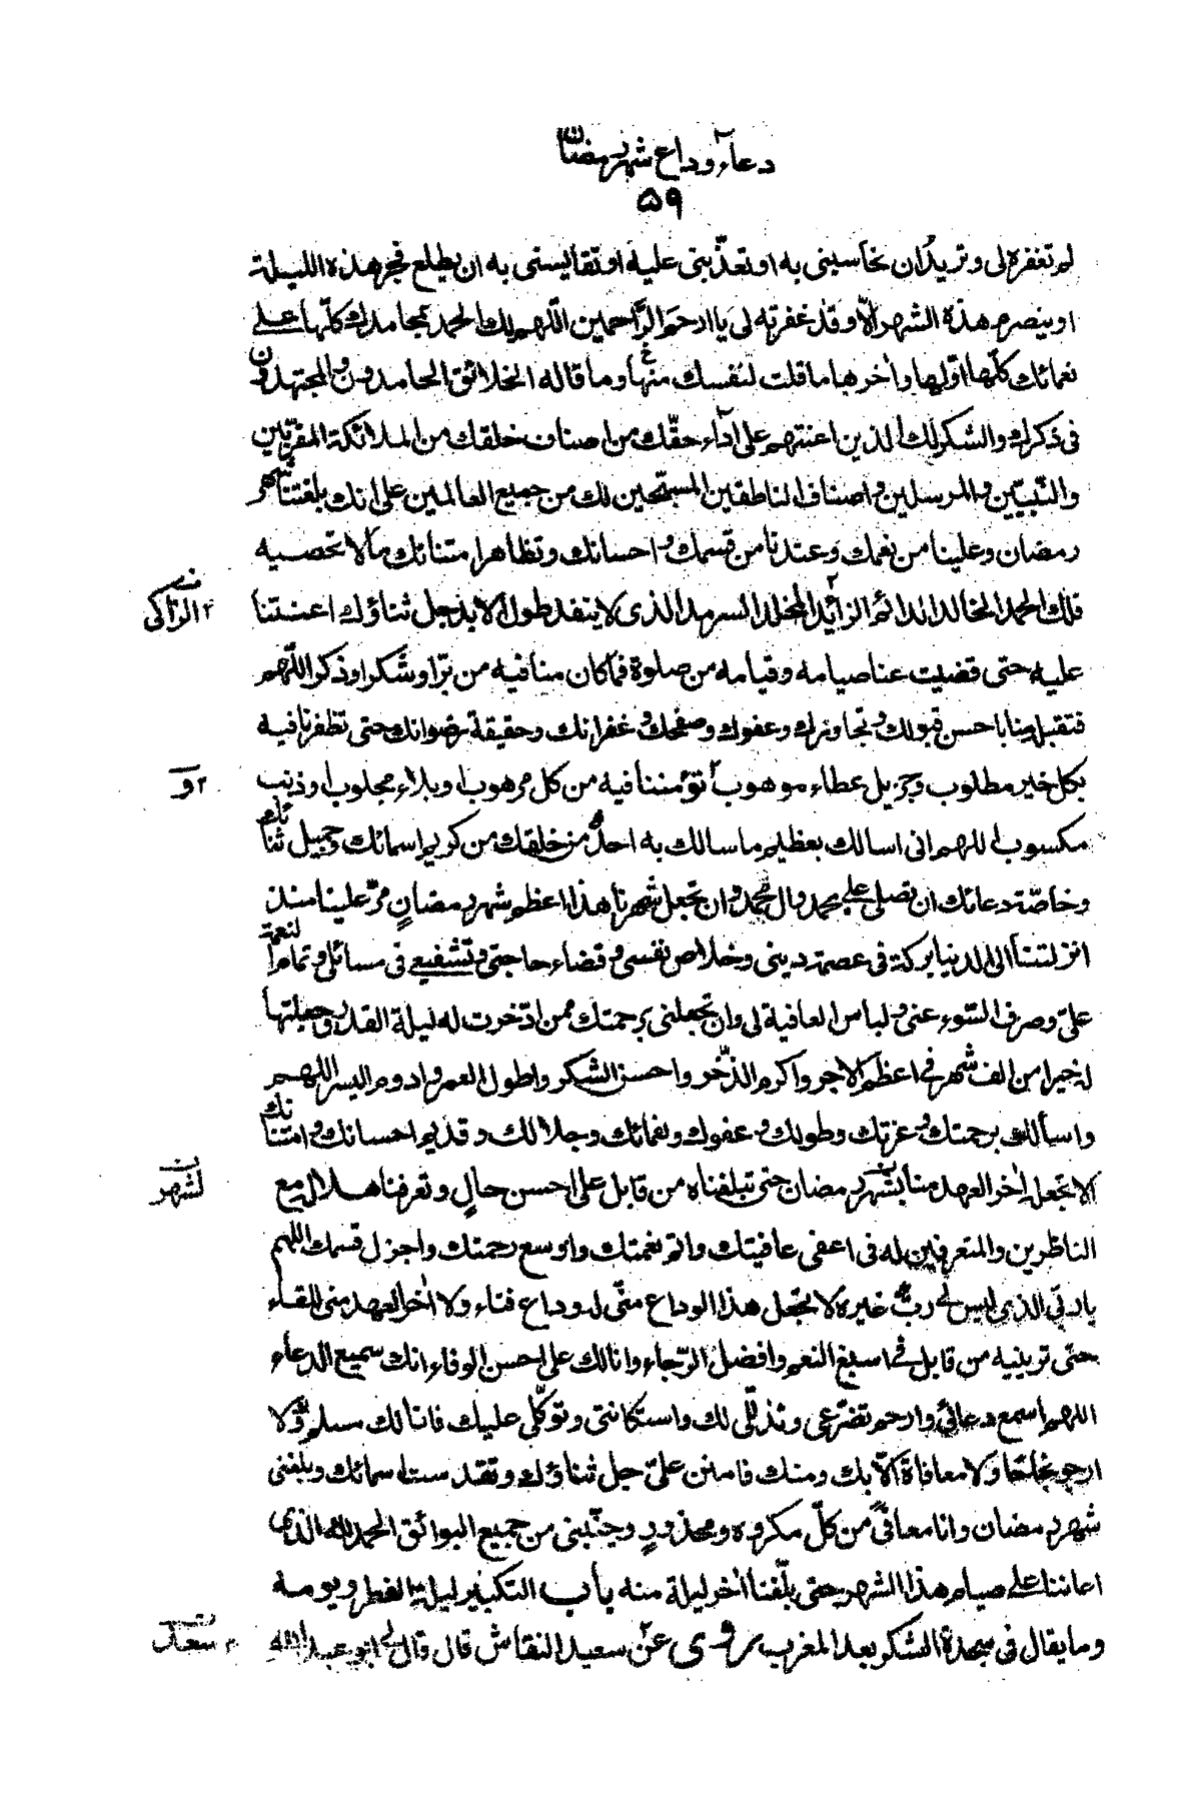 دعاء وداع شهر رمضان
۵۹
لم تغفره لى وتريد ان تحاسبنى به او تعذّبنى عليه او تقايسنى به ان يطلع فجر هذه الليلة
او ينصرم هذه الشهر الّا وقد غفرته لى يا ارحم الرّاحمين اللّهم لك الحمد بمحامدك كلّها على
نعمائك كلّها اوّلها واٰخرها ما قلت لنفسك منها وما قاله الخلائق الحامدون والمجتهدون
فى ذكرك والشكر لك الذين اعنتهم على اداٰء حقّك من اصناف خلقك من الملائكة المقرّبين
والنّبيّين والمرسلين واصناف الناطقين المسبّحين لك من جميع العالمين على انك بلغتنا شهر
رمضان وعلينا من نعمك وعندنا من قسمك واحسانك وتظاهر امتنانك ما لا نحصيه
فلك الحمد الخالد الدائم الزايد المخلد السرمد الذى لا ينفد طول الابد جل ثناؤك اعنتنا
الزاكى
عليه حتى قضيت عنا صيامه وقيامه من صلوة فما كان منا فيه من برّ او شكر او ذكر اللّهم
فتقبل منا باحسن قبولك وتجاوزك وعفوك وصفحك وغفرانك وحقيقة رضوانك حتى تظفرنا فيه
بكل خير مطلوب وجزيل عطاء موهوب تؤمننا فيه من كل مرهوب او بلاء مجلوب او ذنب
۲ و
مكسوب اللهم انى اسالك بعظيم ما سالك به احدٌ من خلقك من كريم اسمائك وجميل ثنائك
وخاصّة دعائك ان تصلى على محمد وال محمد وان تجعل شهرنا هذا اعظم شهر رمضانٍ مرّ علينا منذ
انزلتنا الى الدنيا بركة فى عصمة دينى وخلاص نفسى وقضاء حاجتى وتشفيع فى مسائلى وتمام النعمة
علىّ وصرف السّوء عنى ولباس العافية لى وان تجعلنى برحمتك ممن ادّخرت له ليلة القدر وجعلتها
له خيرا من الف شهر فى اعظم الاجر واكرم الذّخر واحسن الشكر واطول العمر وادوم اليسر اللهم
واسألك برحمتك وعزتك وطولك وعفوك ونعمائك وجلالك وقديم احسانك وامتنانك
الا تجعل اٰخر العهد منا بشهر رمضان حتى تبلغناه من قابل على احسن حالٍ وتعرفنا هلاله مع
لشهر
الناظرين والمتعرفين له فى اعفى عافيتك واتم نعمتك واوسع رحمتك واجزل قسمك اللهم
يا ربّى الذى ليس لى ربّ غيره لا تجعل هذا الوداع منّى له وداع فناء ولا اٰخر العهد منى للقاء
حتى ترينيه من قابل فى اسبغ النعم وافضل الرّجاء وانا لك على احسن الوفاء انك سميع الدعاء
اللهم اسمع دعائى وارحم تضرّعى وتذلّلى لك واستكانتى وتوكّلى عليك فانا لك مسلم ولا
ارجو نجاحا ولا معافاة الّا بك ومنك فامنن علىّ جل ثناؤك وتقدست اسمائك وبلغنى
شهر رمضان وانا معافىً من كلّ مكروه ومحذورٍ وجنّبنى من جميع البوائق الحمد لله الذى
اعاننا على صيام هذا الشهر حتى بلّغنا اٰخر ليلة منه باب التكبير ليلة الفطر ويومه
وما يقال فى سجدة الشكر بعد المغرب روى عن سعيد النقاش قال قال لى ابو عبد الله